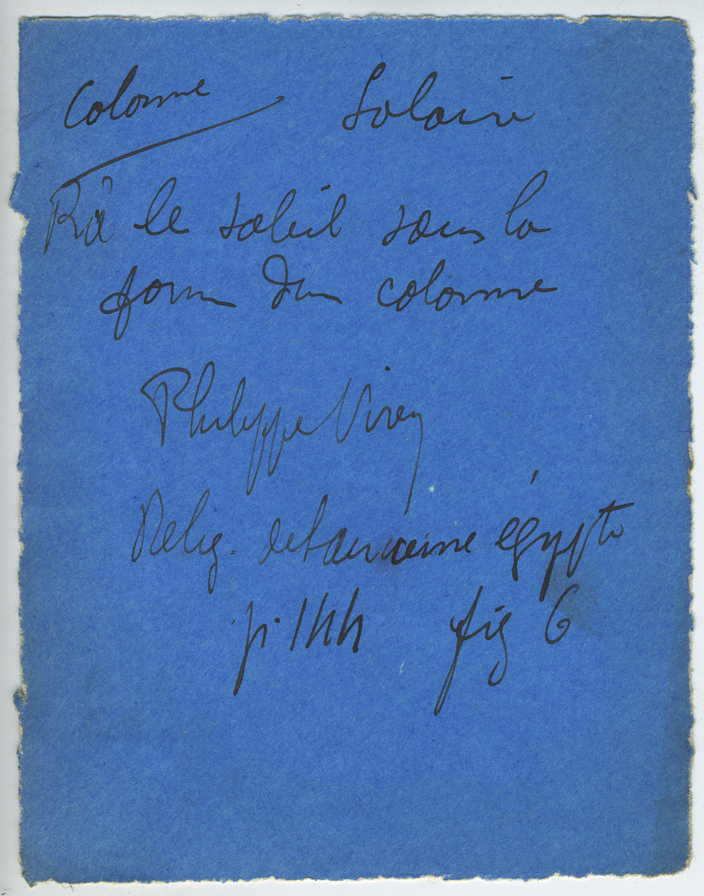 Colonne Solaire
Râ le soleil sous la
forme d'un colonne
Philippe Virey
Relig. de l'ancienne égypte
p. 144 fig 6